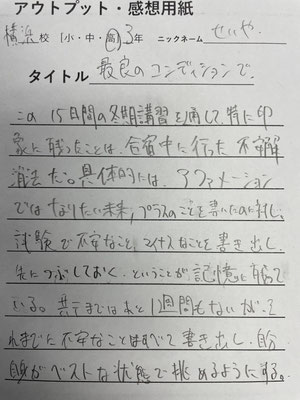 アウトプット・感想用紙
横浜校(小・中・高)3年 ニックネーム せいや
タイトル 最良のコンディションで
この15日間の冬期講習を通して、特に印
象に残ったことは、合宿中に行った不安解
消法だ。具体的には、アファメーション
ではなりたい未来、プラスのことを書いたのに対し、
試験で不安なこと、マイナスなことを書き出し
先につぶしておく、ということが記憶に残って
いる。共テまではあと1週間もないが、そ
れまでに不安なことはすべて書き出し、自分
自身がベストな状態で挑めるようにする。